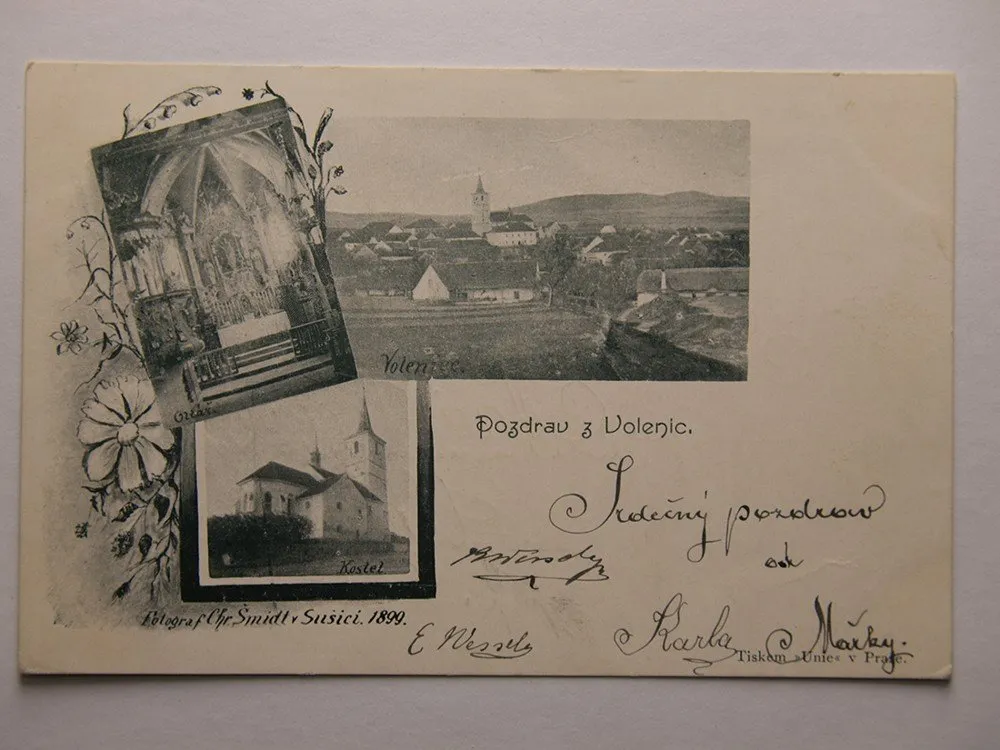 Oltář.
Volenice.
Pozdrav z Volenic.
Kostel
Srdečný pozdrav
od
Karla Mařky.
E Wessely
Fotograf Chr. Šmidl v Sušici. 1899.
Tiskem »Unie« v Praze.